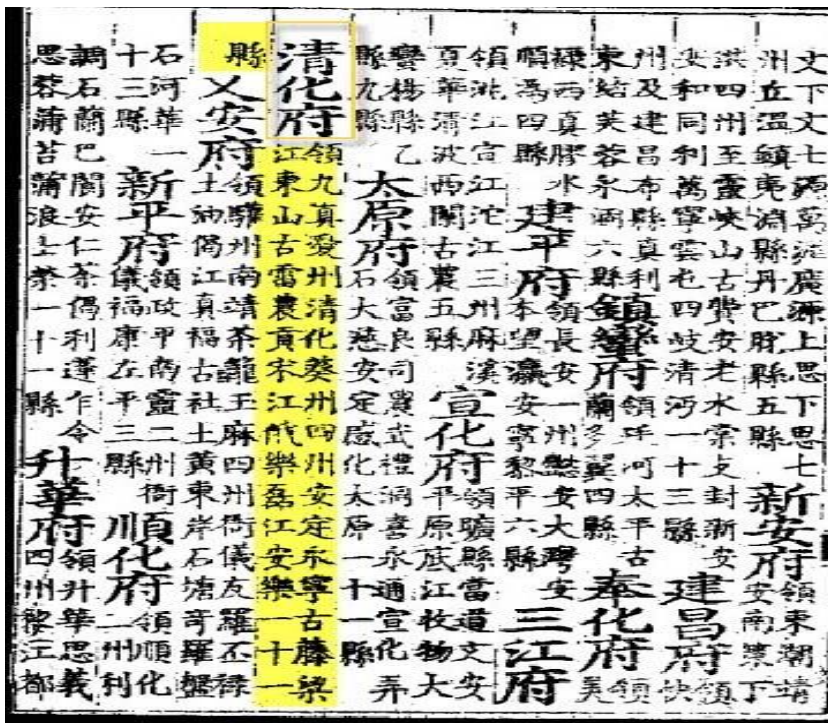 文下文七源萬涯廣源上思下思七
州丘溫鎮夷淵縣丹巴脫縣五縣
新安府
領東潮靖
安南策下
洪四州至靈峽山古費安老水棠支封新安
安和同利萬寧雲屯四岐清沔一十三縣
建昌府
領
快
州及建昌布縣真利
東結芙蓉永涸六縣
鎮蠻府
領廷河太平古
蘭多翼四縣
奉化府
領
美
祿西真膠水
順為四縣
建平府
領長安一州懿安大灣安
本望瀛安寧黎平六縣
三江府
領洮江宣江沱江三州麻溪
夏華清波西闌古農五縣
宣化府
領曠縣當道文安
平原底江收物大
蠻楊縣乙
縣九縣
太原府
領富良司農武禮洞喜永通宣化弄
石大慈安定感化太原一十一縣
清化府
領九真愛州清化葵州四州安定永寧古藤梁
江東山古雷農貢宋江俄樂磊江安樂一十一
縣
乂安府
領驩州南靖茶籠王麻四州衙儀友羅丕祿
土油偈江真福古社土黃東岸石塘奇羅盤
石河華一
十三縣
新平府
領政平南靈二州衙
儀福康左平三縣
順化府
領順化
二州利
調石蘭巴閬安仁茶偈利蓬乍令
思蓉蒲苔蒲浪士榮一十一縣
升華府
領升華思義
四州黎江都